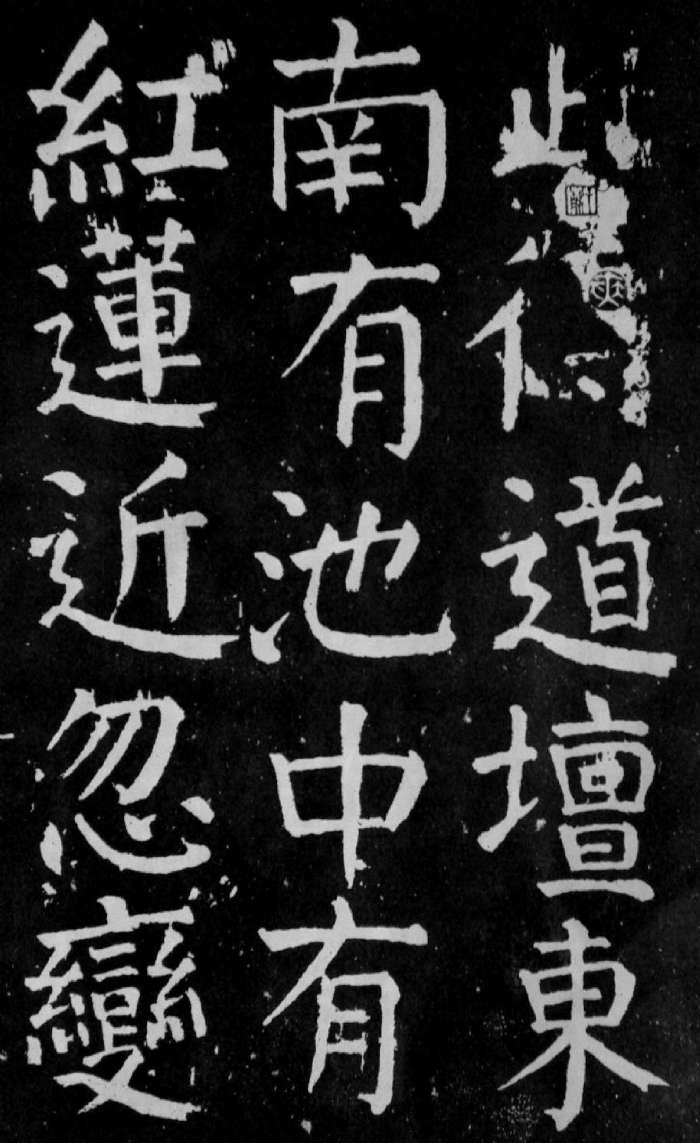 此得道壇東
南有池中有
紅蓮近忽變